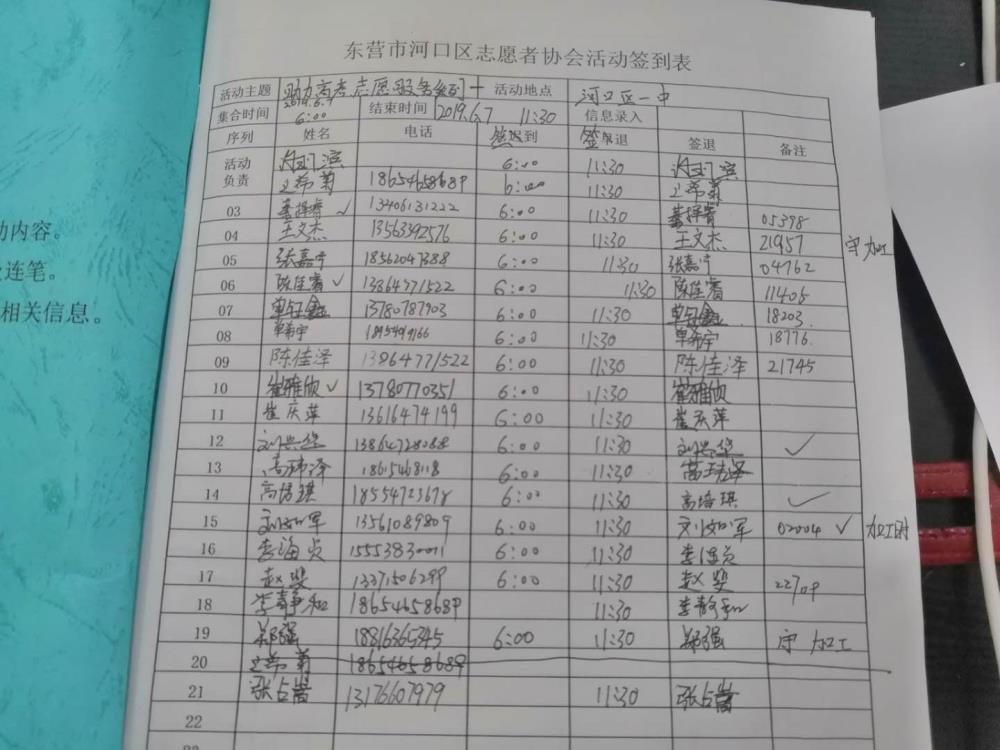 东营市河口区志愿者协会活动签到表
活动主题 助力高考志愿服务 活动地点 河口区一中
集合时间 2019.6.7 6:00 结束时间 2019.6.7 11:30 信息录入
序列 姓名 电话 签到 签退 签退 备注
活动负责 6:00 11:30
18654658689 6:00 11:30
03 13406131222 6:00 11:30 05398
04 王文杰 13563392576 6:00 11:30 王文杰 21957
05 张嘉宁 18562047388 6:00 11:30 张嘉宁 04762
06 陈佳睿 ✓ 13864771522 6:00 11:30 陈佳睿 11405
07 13780787903 6:00 11:30 18203
08 单希宇 6:00 11:30 单希宇 18776
09 陈佳泽 13864771522 6:00 11:30 陈佳泽 21745
10 崔雅欣 ✓ 13780770351 6:00 11:30 崔雅欣
11 崔庆萍 13616474199 6:00 11:30 崔庆萍
12 刘兴华 13864728088 6:00 11:30 刘兴华 ✓
13 18615468118 6:00 11:30
14 高培琪 18554723678 6:00 11:30 高培琪 ✓
15 刘如军 13561089809 6:00 11:30 刘如军 02004 ✓
16 李海贞 15553830011 6:00 11:30 李海贞
17 赵斐 13371506299 6:00 11:30 赵斐
18 李静和 18654658689 11:30 李静和
19 郑强 18816365345 6:00 11:30 郑强 加工
20 18654658689
21 张占嵩 13176607979 11:30 张占嵩
22
23
加工
加工时
动内容。
连笔。
相关信息。